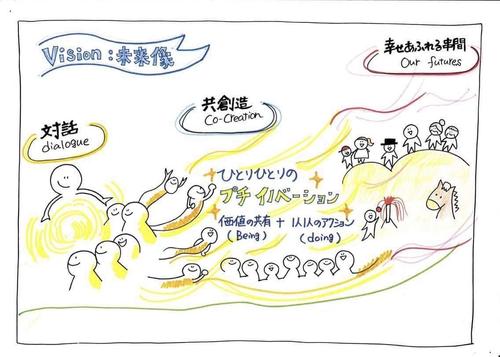 Vision:未来像
幸せあふれる串間
Our futures
共創造
Co-Creation
対話
dialogue
ひとりひとりの
プチイノベーション
価値の共有 + 1人1人のアクション
(Being) (doing)